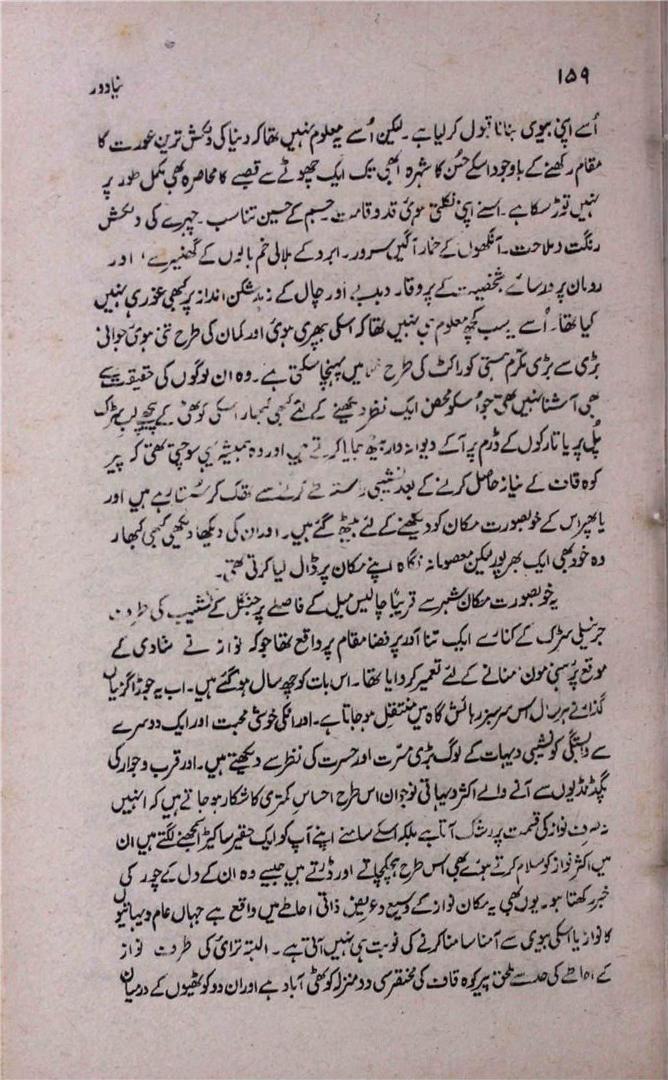 ۱۵۹
نیا دور
اُسے اپنی بیوی بنانا قبول کر لیا ہے۔ لیکن اُسے یہ معلوم نہیں تھا کہ دنیا کی دلکش ترین عورت کا
مقام رکھنے کے باوجود اسکے حُسن کا شہرہ ابھی تک ایک چھوٹے سے قصبے کا محاصرہ بھی مکمل طور پر
نہیں توڑ سکا ہے۔ اسنے اپنی نکلتی ہوئی قد و قامت جسم کے حسین تناسب۔ چہرے کی دلکش
رنگت و ملاحت۔ آنکھوں کے خمار آگیں سرور۔ ابرو کے ہلالی خم بالوں کے گھنیرے، اور
رومان پرور سائے شخصیت کے پروقار دبدبے اور چال کے زہد شکن انداز پر کبھی غور ہی نہیں
کیا تھا۔ اُسے یہ سب کچھ معلوم ہی نہیں تھا کہ اسکی بپھری ہوئی اور کمان کی طرح تنی ہوئی جوانی
بڑی سے بڑی مکرم ہستی کو راکٹ کی طرح خلا میں پہنچا سکتی ہے۔ وہ ان لوگوں کی حقیقت سے
بھی آشنا نہیں تھی جو اُسکو محض ایک نظر دیکھنے کے لئے کبھی کبھار اسکی کوٹھی کے پیچھے لب سڑک
پُلی پر یا تارکول کے ڈرم پر آکے دیوانہ وار بیٹھ جایا کرتے ہیں اور وہ ہمیشہ یہی سوچتی تھی کہ پیر
کوہ قاف کے نیاز حاصل کرنے کے بعد نشیبی راستہ طے کرنے سے تھک کر سُستا رہے ہیں اور
یا پھر اس کے خوبصورت مکان کو دیکھنے کے لئے بیٹھ گئے ہیں۔ اور ان کی دیکھا دیکھی کبھی کبھار
وہ خود بھی ایک بھرپور لیکن معصومانہ نگاہ اپنے مکان پر ڈال لیا کرتی تھی۔
یہ خوبصورت مکان شہر سے قریباً چالیس میل کے فاصلے پر جنگل کے نشیب کی طرف
جرنیلی سڑک کے کنارے ایک تنا آور پر فضا مقام پر واقع تھا جو کہ نواز نے شادی کے
موقع پر ہنی مون منانے کے لئے تعمیر کروایا تھا۔ اس بات کو چھ سال ہو گئے ہیں۔ اب یہ جوڑا گرمیاں
گذارنے ہر سال اس سرسبز رہائش گاہ میں منتقل ہو جاتا ہے۔ اور انکی خوشی محبت اور ایک دوسرے
سے وابستگی کو نشیبی دیہات کے لوگ بڑی مسرّت اور حسرت کی نظر سے دیکھتے ہیں۔ اور قرب و جوار کی
پگڈنڈیوں سے آنے والے اکثر دیہاتی نوجوان اس طرح احساسِ کمتری کا شکار ہو جاتے ہیں کہ انہیں
نہ صرف نواز کی قسمت پر رشک آتا ہے بلکہ اسکے سامنے اپنے آپ کو ایک حقیر سا کیڑا سمجھنے لگتے ہیں ان
میں اکثر نواز کو سلام کرتے ہوئے بھی اس طرح ہچکچاتے اور ڈرتے ہیں جیسے وہ ان کے دل کے چور کی
خبر رکھتا ہو۔ یوں بھی یہ مکان نواز کے وسیع و عریض ذاتی احاطے میں واقع ہے جہاں عام دیہاتیوں
کا نواز یا اسکی بیوی سے آمنا سامنا کرنے کی نوبت ہی نہیں آتی ہے۔ البتہ ترائی کی طرف نواز
کے احاطے کی حد سے ملحق پیر کوہ قاف کی مختصر سی دو منزلہ کوٹھی آباد ہے اور ان دو کوٹھیوں کے درمیان